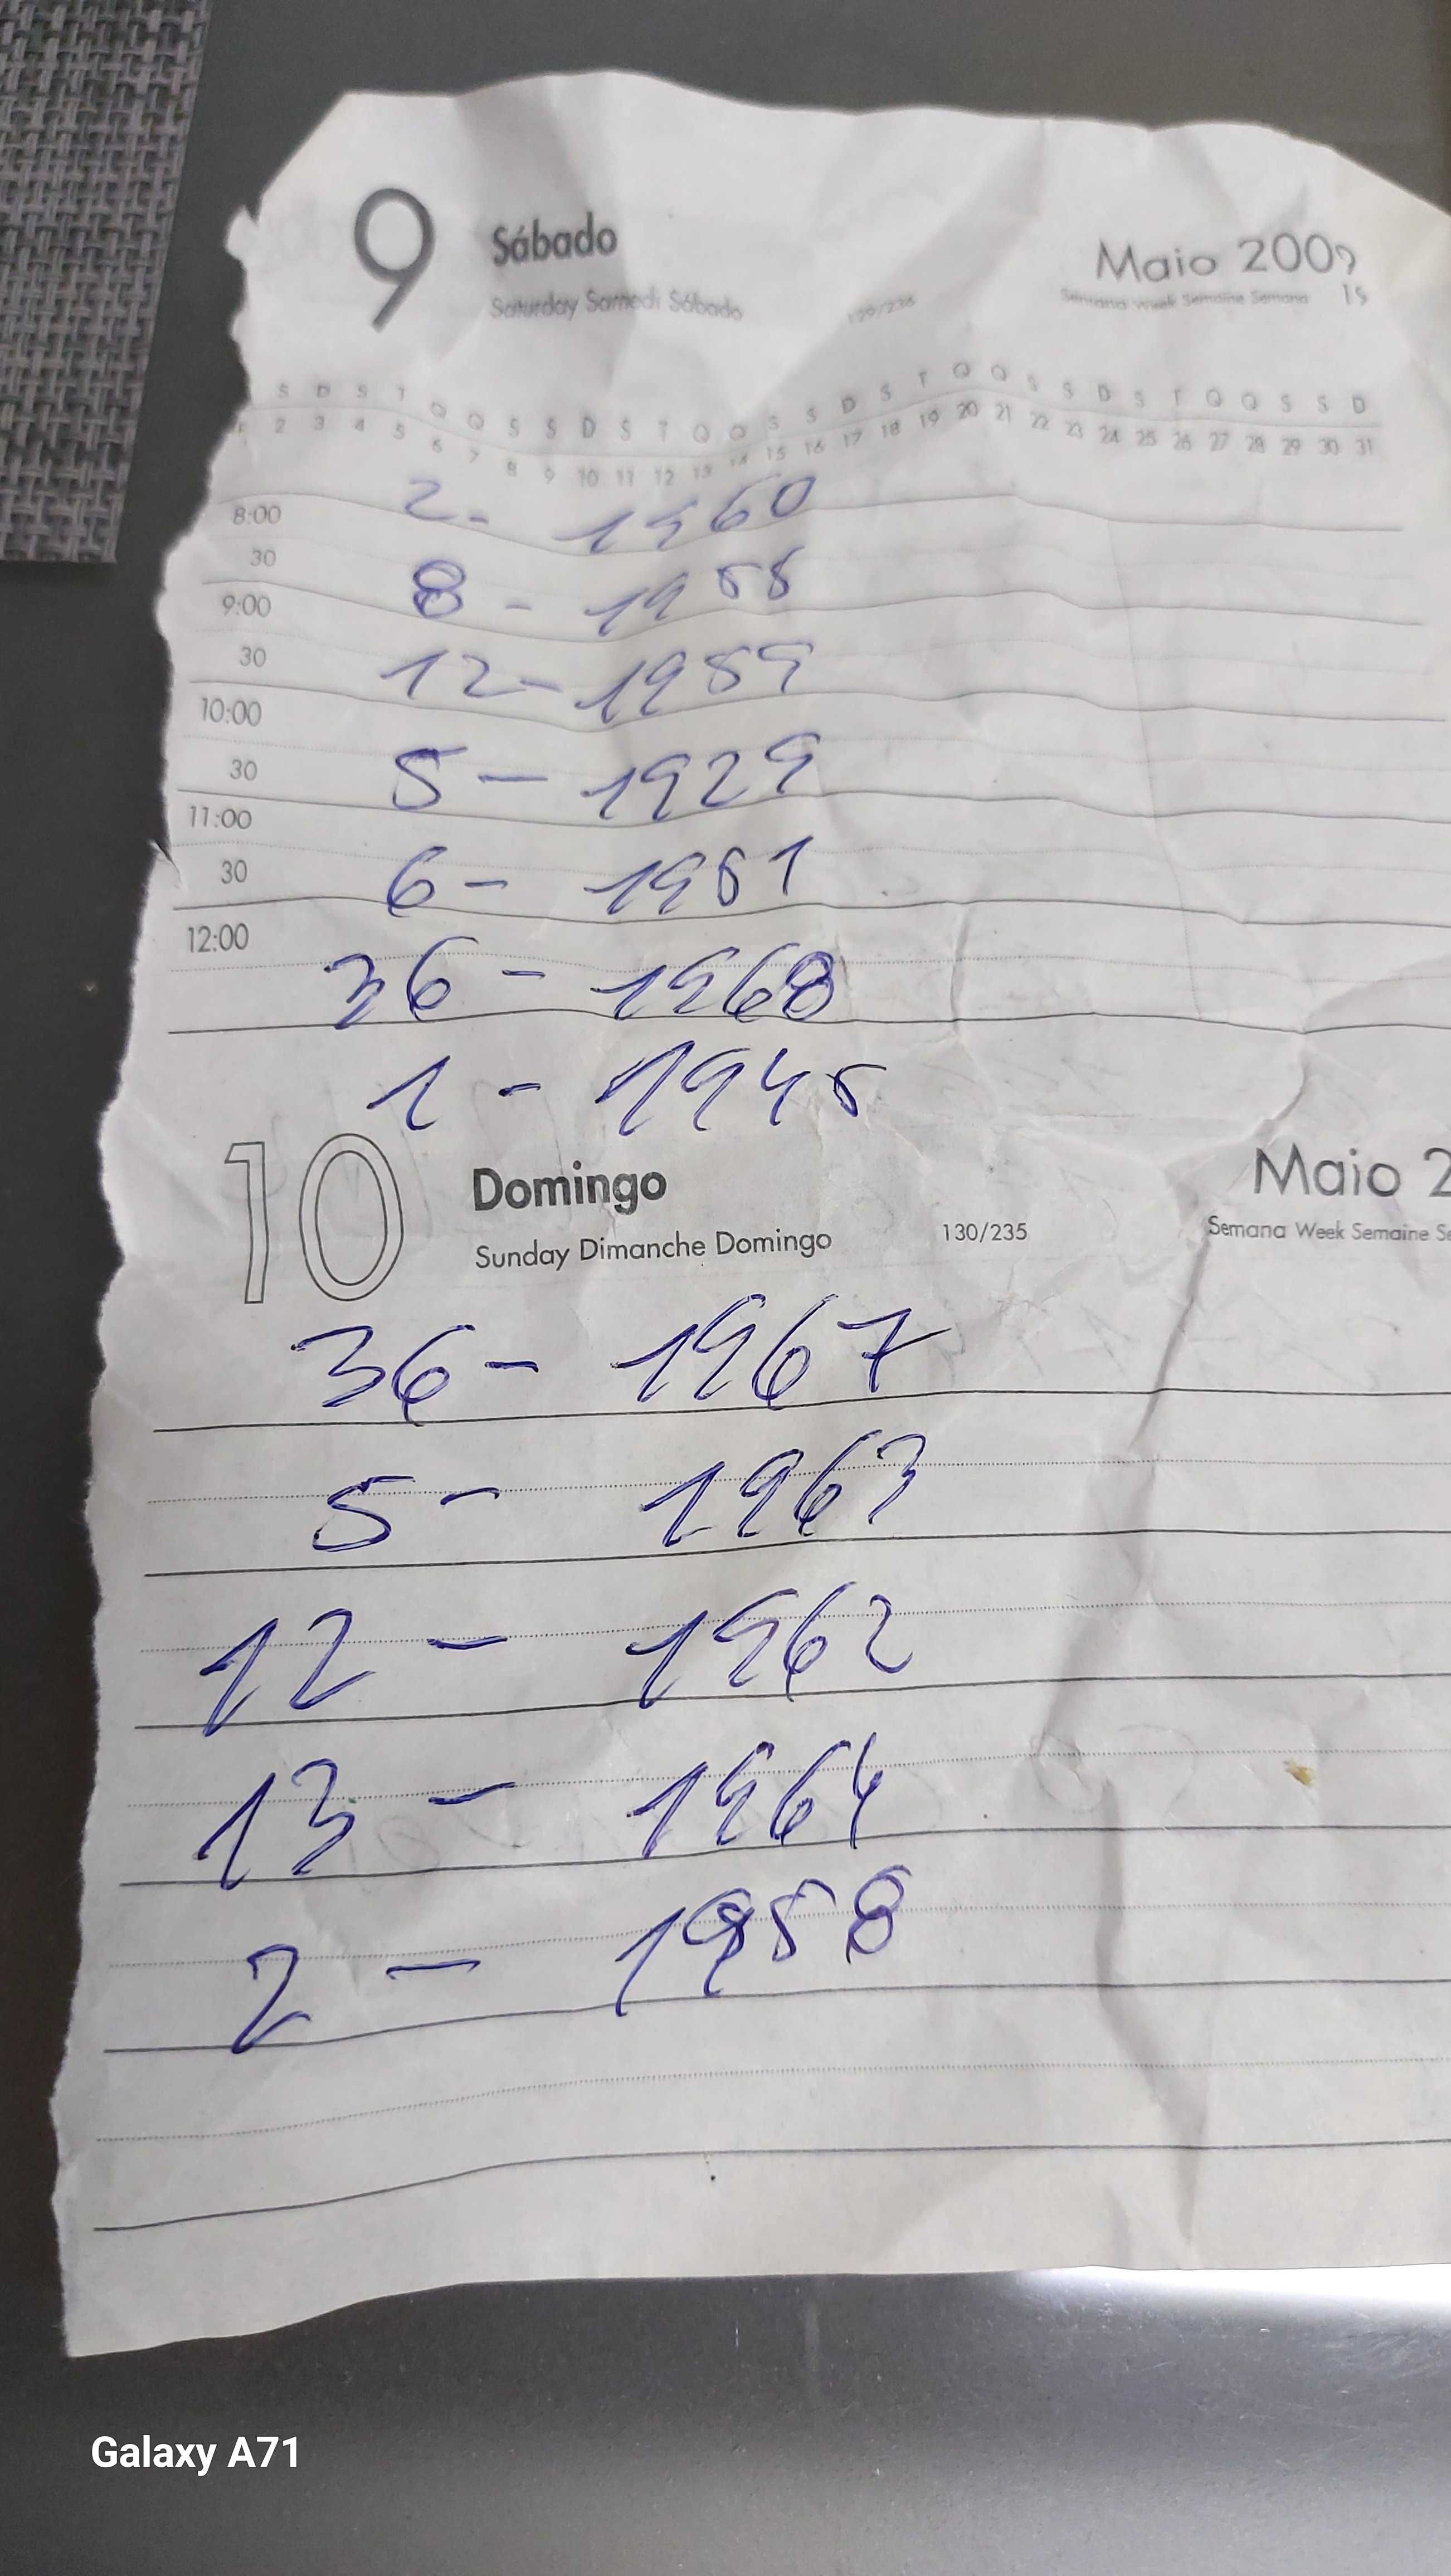 9 Sábado Maio 2009
Saturday Samedi Sábado 129/236 Semana Week Semaine Semana 19
S D S T Q Q S S D S T Q Q S S D S T Q Q S S D S T Q Q S S D
2 3 4 5 6 7 8 9 10 11 12 13 14 15 16 17 18 19 20 21 22 23 24 25 26 27 28 29 30 31
8:00 2- 1960
30
8 - 1955
9:00
30 12-1959
10:00
30 5 - 1929
11:00
30 6 - 1951
12:00
36 - 1968
1 - 1945
10 Domingo Maio 2
Sunday Dimanche Domingo 130/235 Semana Week Semaine Se
36 - 1967
5 - 1963
12 - 1962
13 - 1964
2 - 1958
Galaxy A71